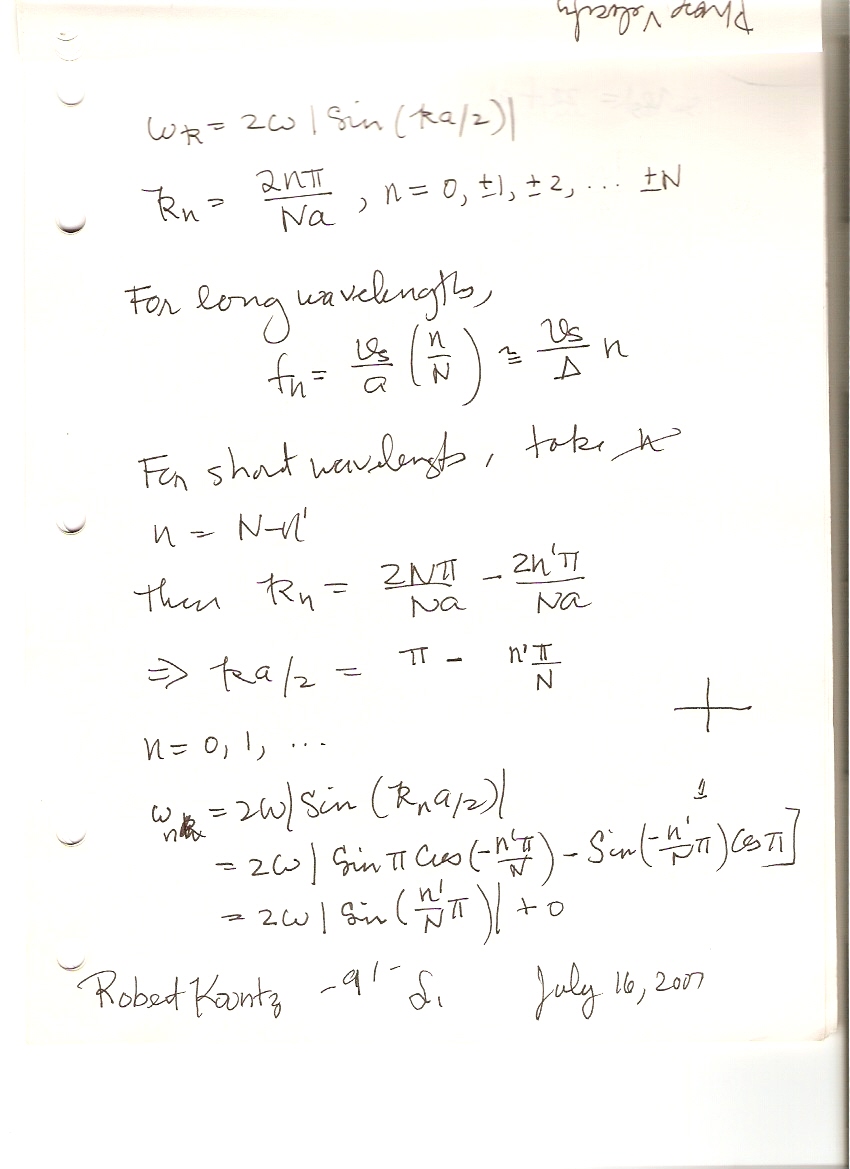 Phase Velocity
ω_k = 2ω | Sin (ka/2)|
k_n = 2nπ/Na , n = 0, ±1, ±2, ... ±N
For long wavelengths,
f_n = v_s/a (n/N) ≅ v_s/Δ n
For short wavelengths, take
n = N-n'
then k_n = 2Nπ/Na - 2n'π/Na
⇒ ka/2 = π - n'π/N
n = 0, 1, ...
ω_n = 2ω| Sin (k_n a/2)|
= 2ω | Sin π Cos (-n'π/N) - Sin(-n'/N π) Cos π]
= 2ω | Sin (n'/N π)| + 0
Robert Koontz -91- July 16, 2007